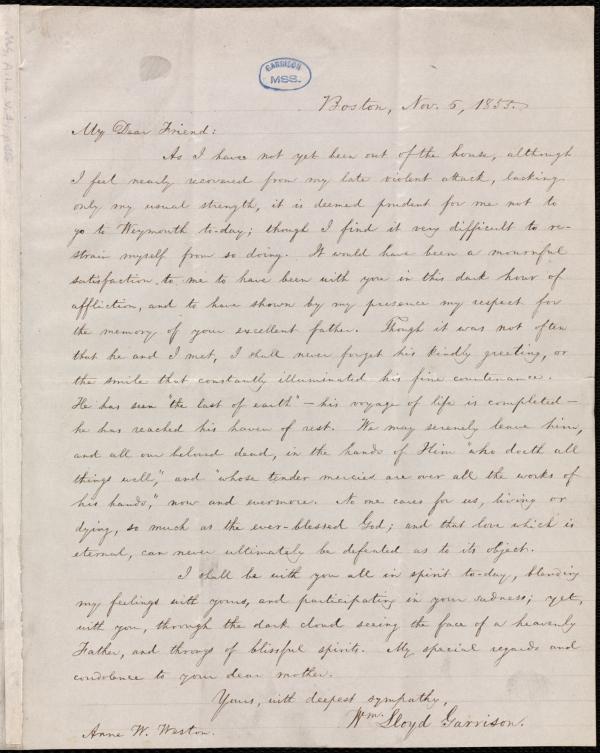 GARRISON
MSS.
Boston, Nov. 5, 1855.
My Dear Friend:
As I have not yet been out of the house, although
I feel nearly recovered from my late violent attack, lacking
only my usual strength, it is deemed prudent for me not to
go to Weymouth to-day; though I find it very difficult to re-
strain myself from so doing. It would have been a mournful
satisfaction to me to have been with you in this dark hour of
affliction, and to have shown by my presence my respect for
the memory of your excellent father. Though it was not often
that he and I met, I shall never forget his kindly greeting, or
the smile that constantly illuminated his fine countenance.
He has seen "the last of earth" – his voyage of life is completed –
he has reached his haven of rest. We may serenely leave him,
and all our beloved dead, in the hands of Him "who doeth all
things well," and "whose tender mercies are over all the works of
his hands," now and evermore. No one cares for us, living or
dying, so much as the ever-blessed God; and that love which is
eternal, can never ultimately be defeated as to its object.
I shall be with you all in spirit to-day, blending
my feelings with yours, and participating in your sadness; yet,
with you, through the dark cloud seeing the face of a heavenly
Father, and throngs of blissful spirits. My special regards and
condolence to your dear mother.
Yours, with deepest sympathy,
Wm. Lloyd Garrison.
Anne W. Weston.